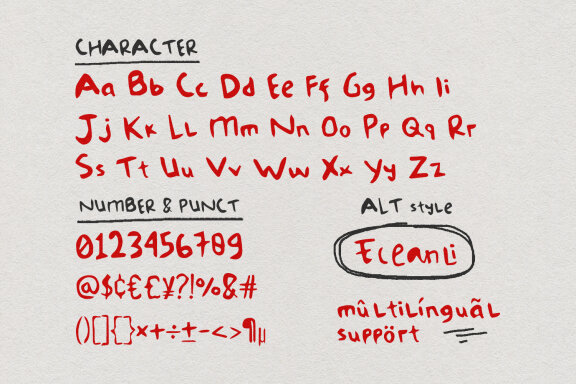 CHARACTER
Aa Bb Cc Dd Ee Ff Gg Hh Ii
Jj Kk Ll Mm Nn Oo Pp Qq Rr
Ss Tt Uu Vv Ww Xx Yy Zz
NUMBER & PUNCT
0123456789
@$¢€£¥?!%&#
()[]{}×+÷±-<>¶µ
ALT style
EceanLi
mûLtiLínguãL
suppört